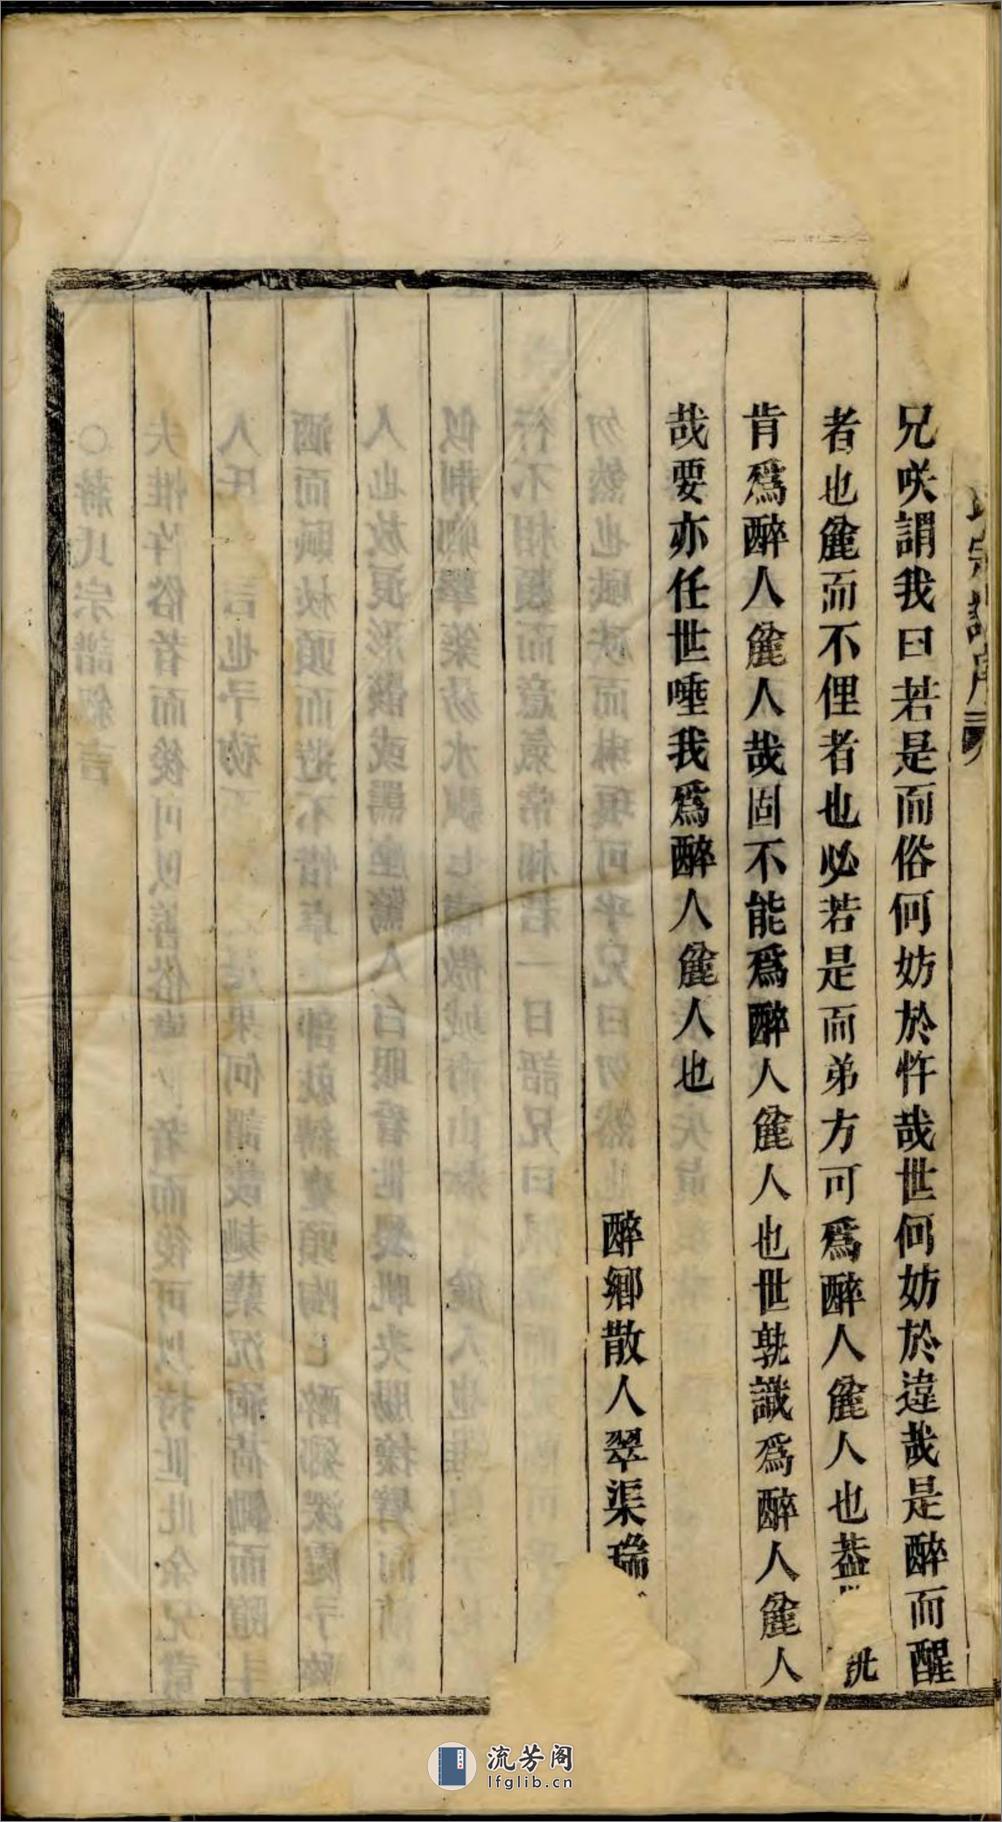 兄咲謂我曰若是而俗何妨於忤哉世何妨於違哉是醉而醒
者也麄而不俚者也必若是而弟方可爲醉人麄人也葢
肯爲醉人麄人哉固不能爲醉人麄人也世孰識爲醉人麄人
哉要亦任世唾我爲醉人麄人也
醉鄉散人翠渠瑞
宗譜序
流芳阁
lfglib.cn